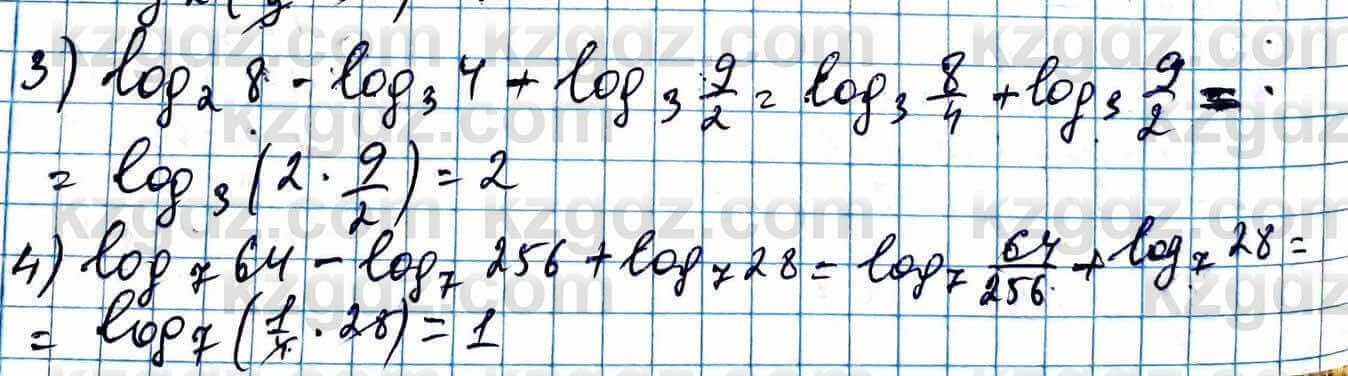 3) log₂ 8 - log₃ 4 + log₃ 9/2 = log₃ 8/4 + log₃ 9/2 =
= log₃ (2 · 9/2) = 2
4) log₇ 64 - log₇ 256 + log₇ 28 = log₇ 64/256 + log₇ 28 =
= log₇ (1/4 · 28) = 1
kzgdz.com